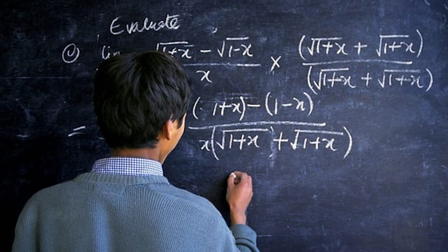 Evaluate
√1+x − √1-x / x × (√1+x + √1-x) / (√1+x + √1+x)
= (1+x) − (1-x) / x(√1+x + √1+x)